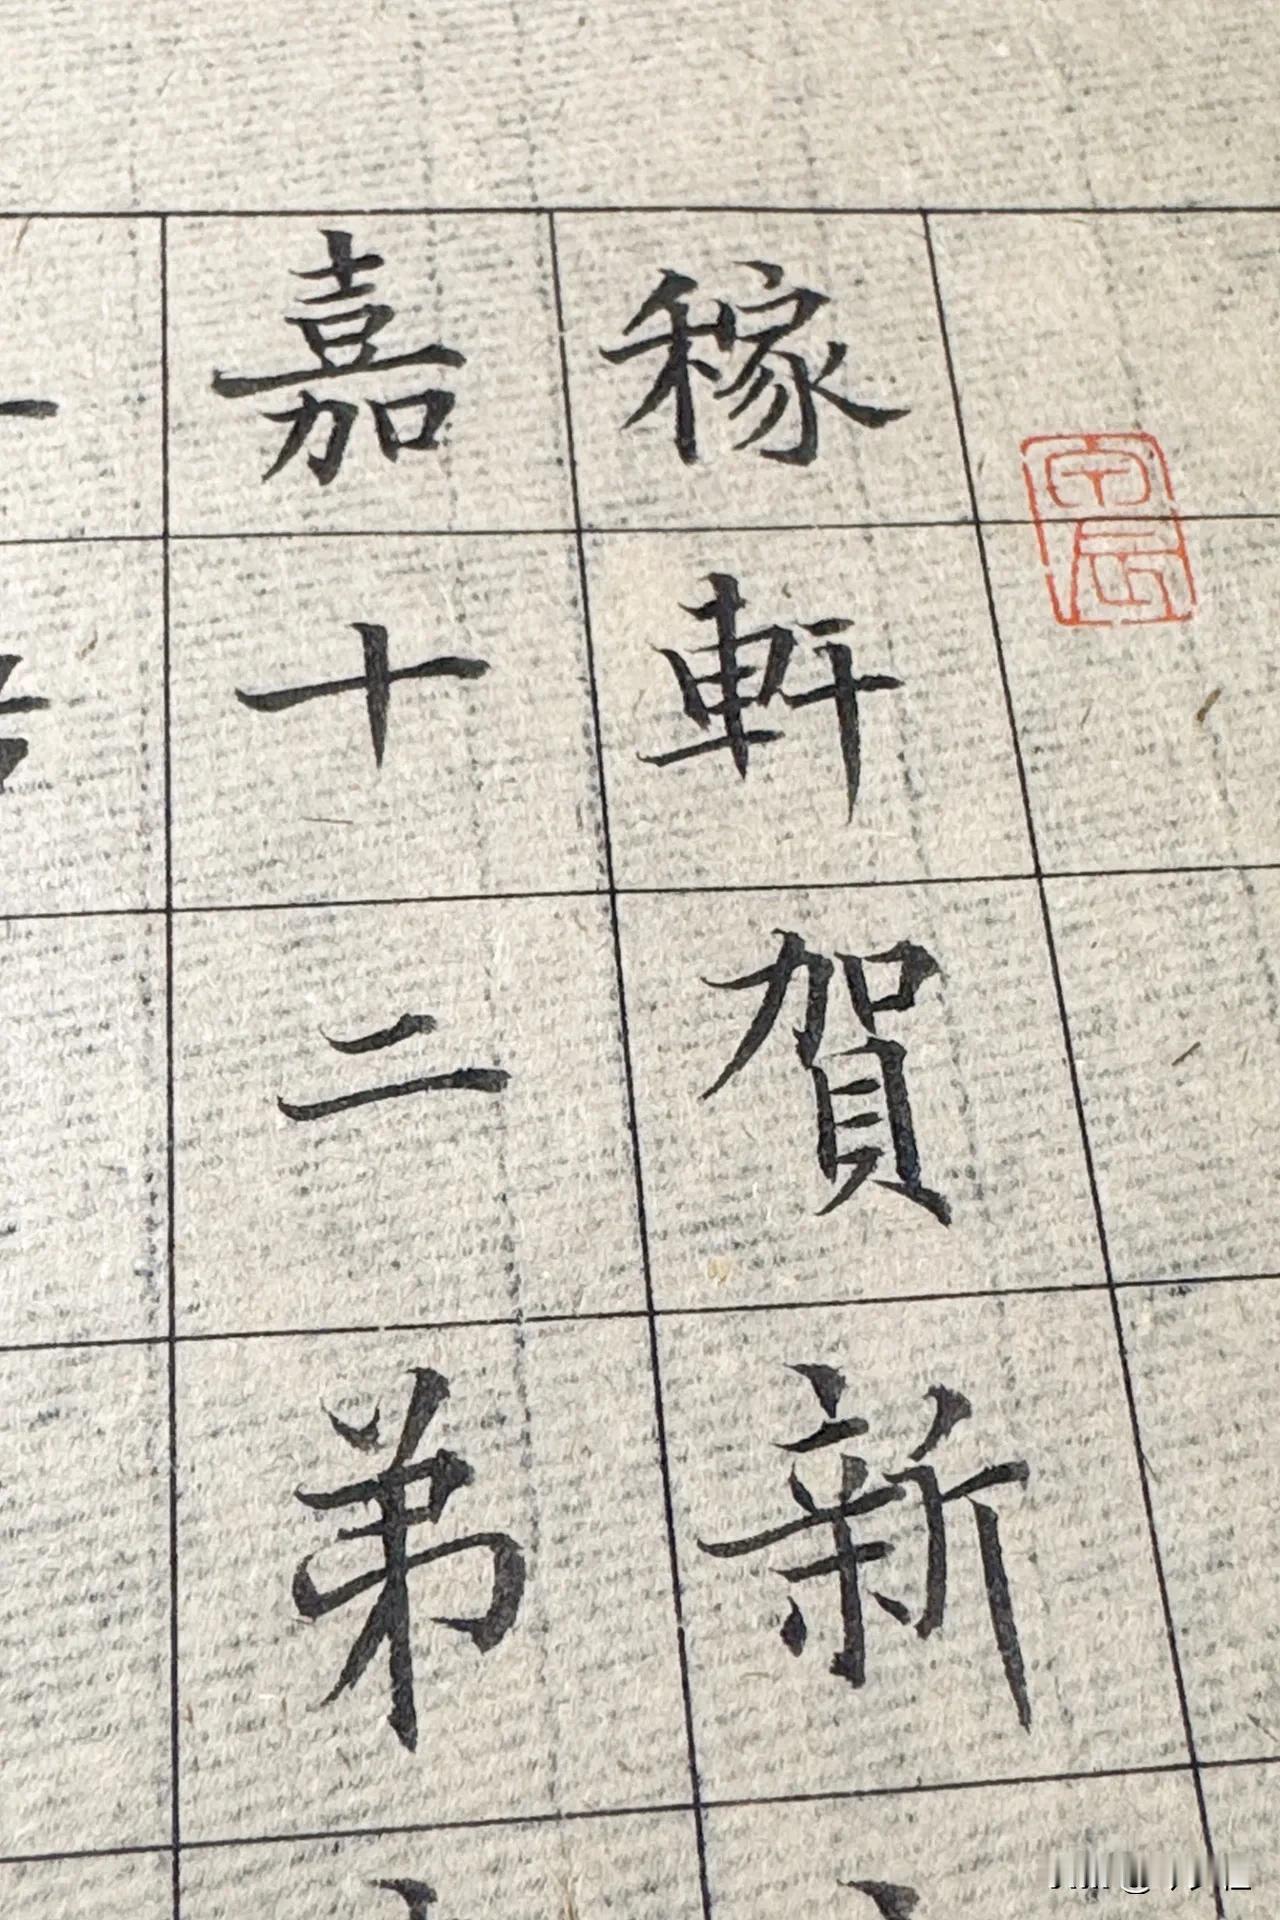 稼軒賀新
嘉十二弟